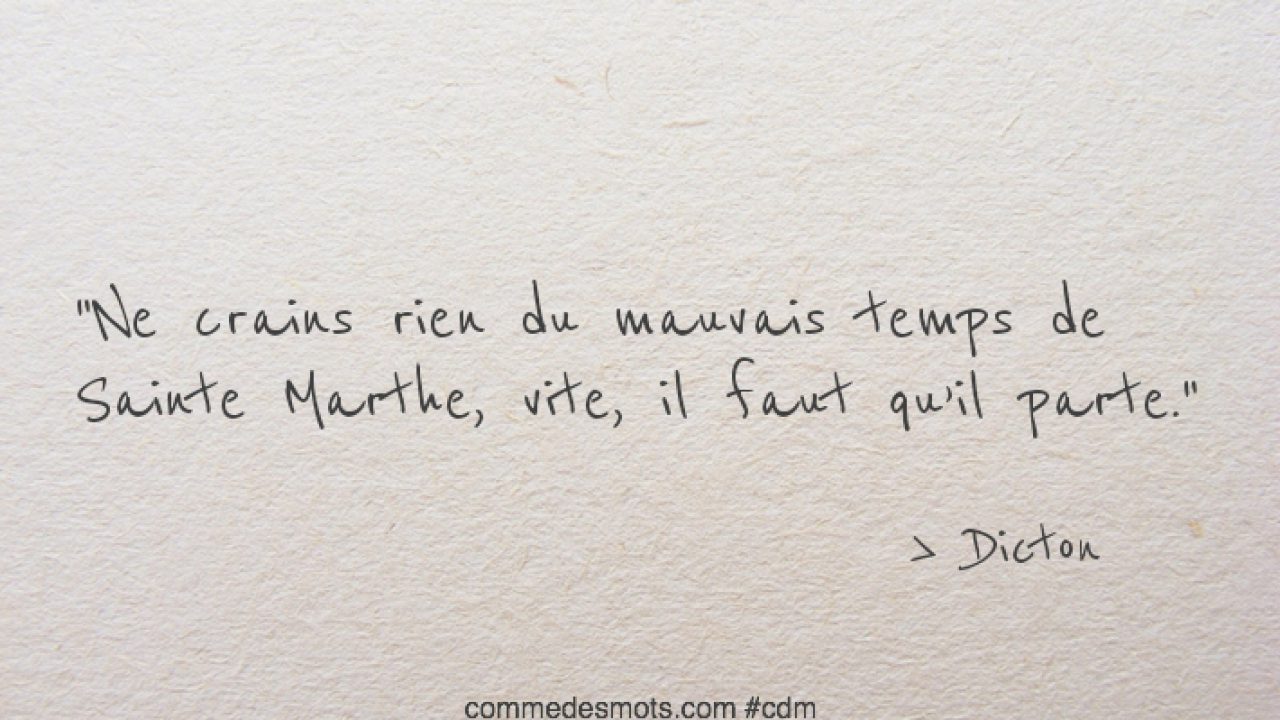 "Ne crains rien du mauvais temps de
Sainte Marthe, vite, il faut qu'il parte."
> Dicton
commedesmots.com #cdm